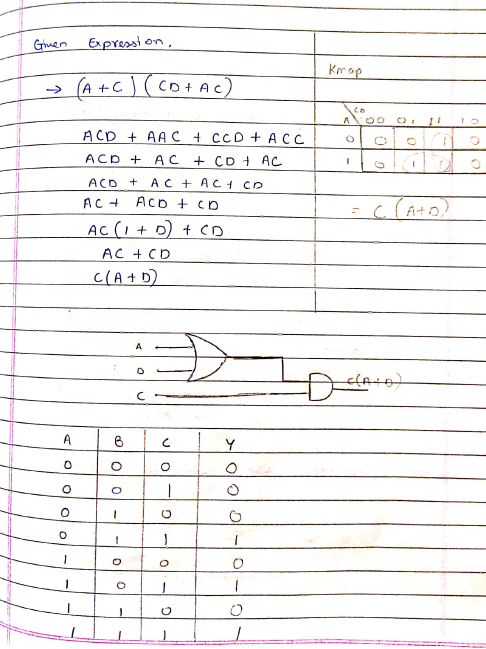 Given Expression.
→ (A+C) (CD + AC)
ACD + AAC + CCD + ACC
ACD + AC + CD + AC
ACD + AC + AC + CD
AC + ACD + CD
AC (1 + D) + CD
AC + CD
C(A+D)
Kmap
CD
A 00 01 11 10
0 0 0 1 0
1 0 1 1 0
= C (A+D)
A
D
C
C(A+D)
A B C Y
0 0 0 0
0 0 1 0
0 1 0 0
0 1 1 1
1 0 0 0
1 0 1 1
1 1 0 0
1 1 1 1